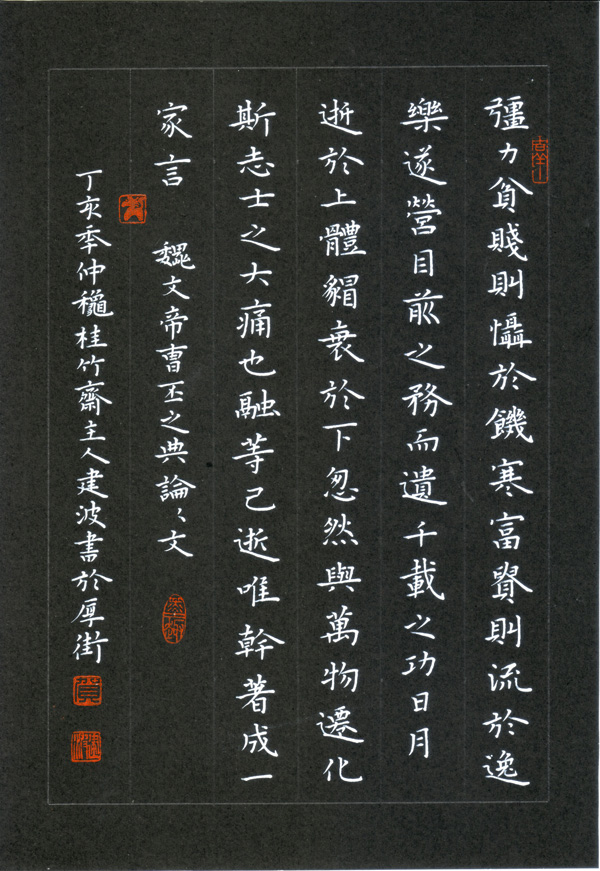 彊力貧賤則懾於饑寒富貴則流於逸
樂遂營目前之務而遺千載之功日月
逝於上體貌衰於下忽然與萬物遷化
斯志士之大痛也融等已逝唯幹著成一
家言 魏文帝曹丕之典論〻文
丁亥秊仲龝桂竹齋主人建波書於厚街
吉羊
賀
建波